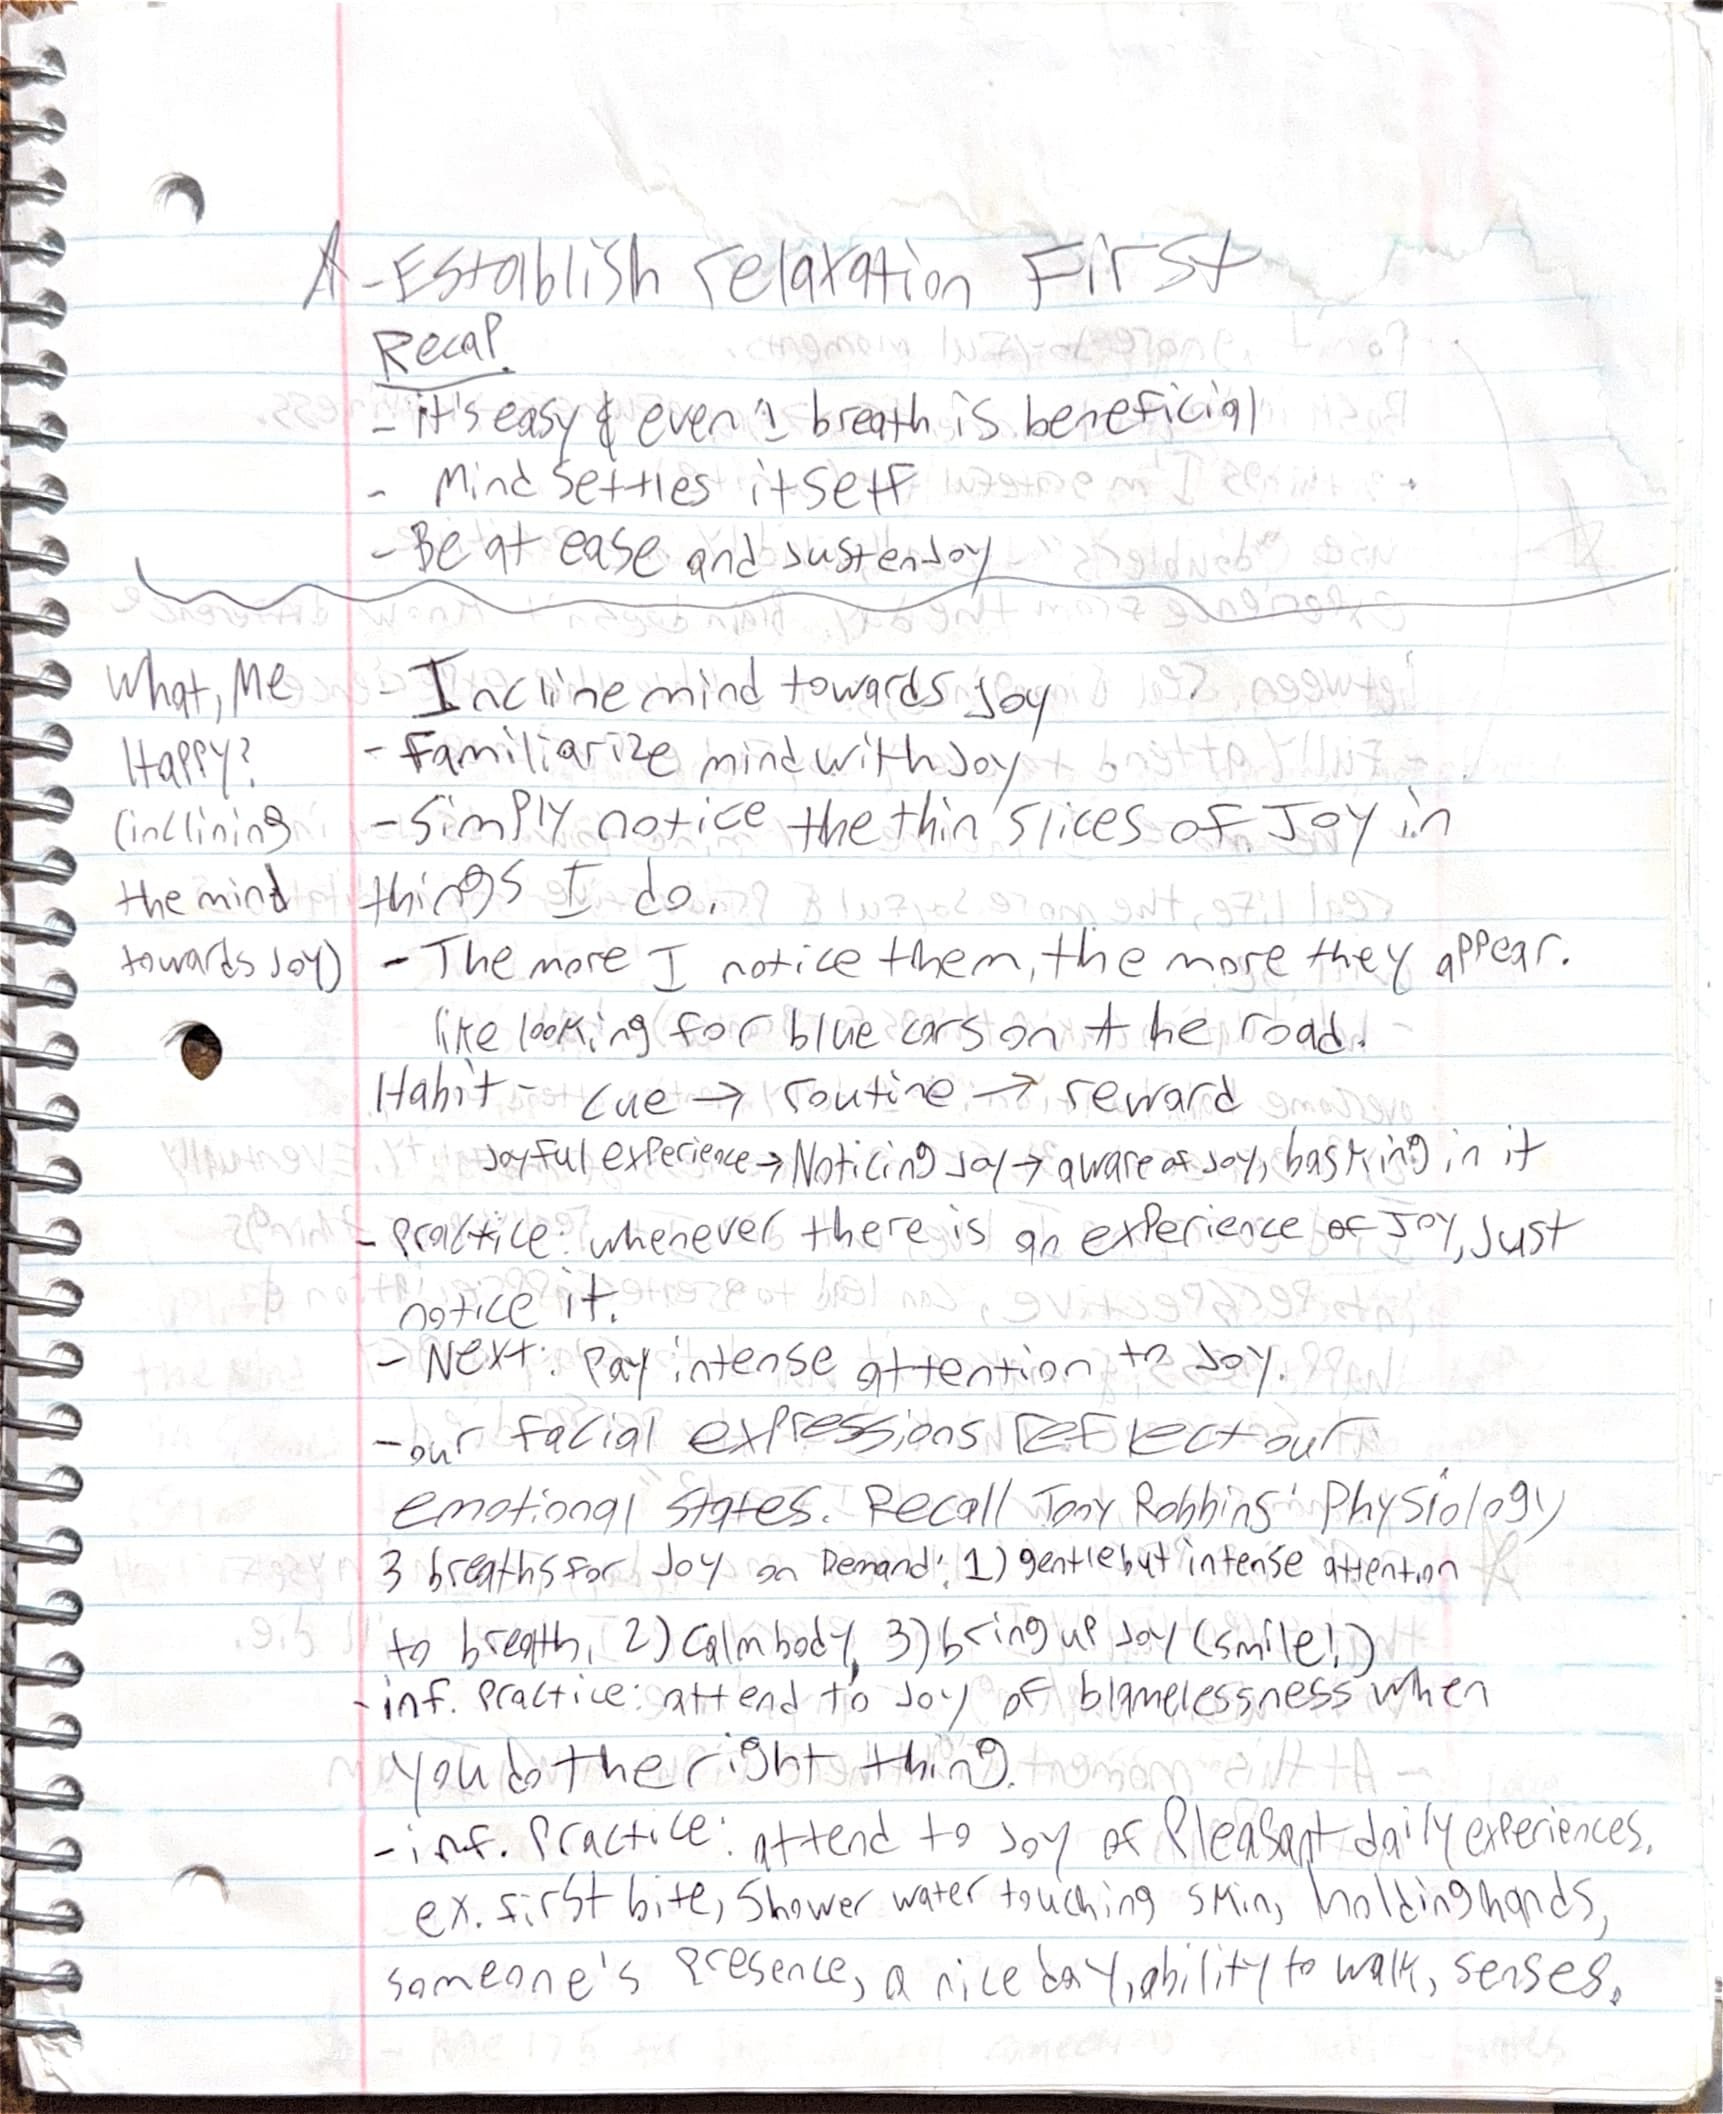 A - Establish relaxation First
Recap
- it's easy & even 1 breath is beneficial
- Mind settles itself
- Be at ease and just enjoy
What, Me - Incline mind towards Joy
Happy? - Familiarize mind with Joy
(inclining - Simply notice the thin slices of Joy in
the mind things I do.
towards Joy) - The more I notice them, the more they appear.
like looking for blue cars on the road.
Habit - cue → routine → reward
Joyful experience → Noticing Joy → aware of Joy, basking in it
- Practice: whenever there is an experience of Joy, Just
notice it.
- Next: Pay intense attention to Joy.
- our facial expressions reflect our
emotional states. Recall Tony Robbins' Physiology
3 breaths for Joy on Demand: 1) gentle but intense attention
to breath, 2) Calm body, 3) bring up Joy (smile!)
- inf. Practice: attend to Joy of blamelessness when
you do the right thing.
- inf. Practice: attend to Joy of Pleasant daily experiences.
ex. first bite, Shower water touching skin, holding hands,
someone's presence, a nice day, ability to walk, senses.